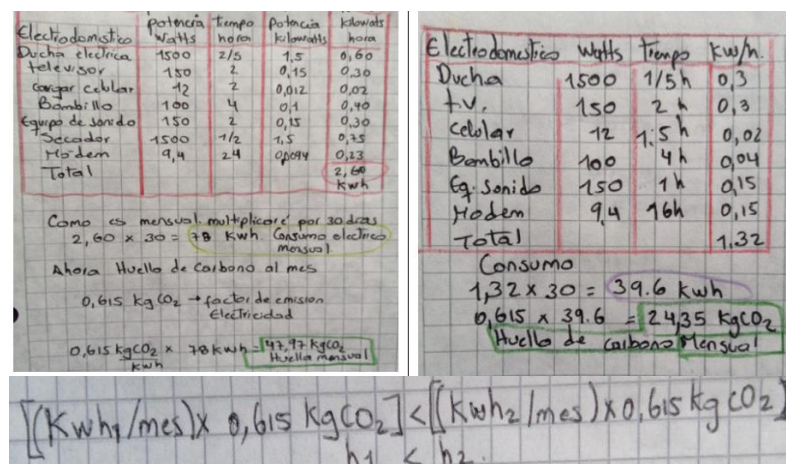 Electrodomestico potencia Watts tiempo hora Potencia Kilowatts kilowats hora
Ducha electrica 1500 2/5 1,5 0,60
televisor 150 2 0,15 0,30
cargar celular 12 2 0,012 0,02
Bombillo 100 4 0,1 0,40
Equipo de sonido 150 2 0,15 0,30
Secador 1500 1/2 1,5 0,75
Modem 9,4 24 0,0094 0,23
Total 2,60 Kwh
Como es mensual. multiplicaré por 30 dias
2,60 x 30 = 78 Kwh Consumo electrico
mensual
Ahora Huella de Carbono al mes
0,615 kg CO2 → factor de emision
Electricidad
0,615 kg CO2/Kwh x 78 Kwh = 47,97 kg CO2
Huella mensual
Electrodomestico Watts Tiempo Kw/h.
Ducha 1500 1/5 h 0,3
t.v. 150 2 h 0,3
Celular 12 1:5 h 0,02
Bombillo 100 4 h 0,04
Eq. Sonido 150 1 h 0,15
Modem 9,4 16h 0,15
Total 1,32
Consumo
1,32 x 30 = 39.6 kwh
0,615 x 39.6 = 24,35 KgCO2
Huella de carbono Mensual
[(Kwh1/mes) x 0,615 kg CO2] < [(Kwh2/mes) x 0,615 kg CO2]
h1 < h2.